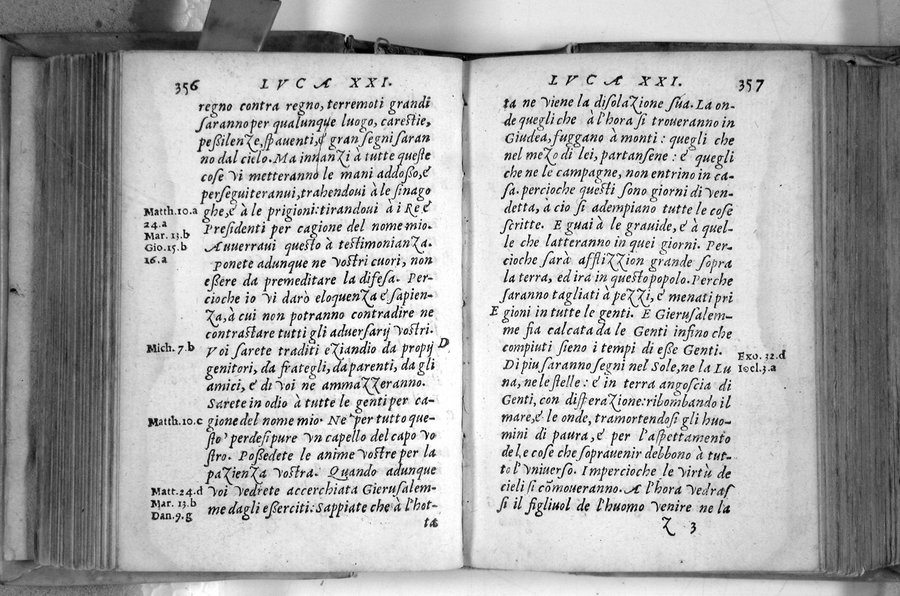 356
LVCA XXI.
regno contra regno, terremoti grandi
saranno per qualunque luogo, carestie,
pestilenze, spauenti, & gran segni saran
no dal cielo. Ma innanzi à tutte queste
cose vi metteranno le mani addosso, è
perseguiteranui, trahendoui à le sinago
Matth.10.a
ghe, è à le prigioni: tirandoui à i Re è
24.a
Presidenti per cagione del nome mio.
Mar. 13.b
Gio.15.b
Auuerraui questo à testimonianza.
16.a
Ponete adunque ne vostri cuori, non
essere da premeditare la difesa. Per-
cioche io vi darò eloquenza è sapien-
za, à cui non potranno contradire ne
contrastare tutti gli aduersarij vostri.
Mich. 7.b
Voi sarete traditi eziandio da propij
D
genitori, da frategli, da parenti, da gli
amici, è di voi ne ammazzeranno.
Sarete in odio à tutte le genti per ca-
Matth.10.c
gione del nome mio. Ne per tutto que-
sto perdesi pure vn capello del capo vo
stro. Possedete le anime vostre per la
pazienza vostra. Quando adunque
Matt.24.d
voi vedrete accerchiata Gierusalem-
Mar. 13.b
me dagli esserciti: Sappiate che à l'hot-
Dan.9.g
ta
LVCA XXI.
357
ta ne viene la disolazione sua. La on-
de quegli che à l'hora si troueranno in
Giudea, fuggano à monti: quegli che
nel mezo di lei, partansene: è quegli
che ne le campagne, non entrino in ca-
sa. percioche questi sono giorni di ven-
detta, à cio si adempiano tutte le cose
scritte. E guai à le grauide, è à quel-
le che latteranno in quei giorni. Per-
cioche sarà afflizzion grande sopra
la terra, ed ira in questo popolo. Perche
saranno tagliati à pezzi, è menati pri
E
gioni in tutte le genti. E Gierusalem-
me fia calcata da le Genti infino che
compiuti sieno i tempi di esse Genti.
Di piu saranno segni nel Sole, ne la Lu
Exo. 32.d
Ioel.3.a
na, ne le stelle: è in terra angoscia di
Genti, con disperazione: ribombando il
mare, è le onde, tramortendosi gli huo-
mini di paura, è per l'aspettamento
de le cose che soprauenir debbono à tut-
to l'vniuerso. Impercioche le virtù de
cieli si cōmoueranno. A l'hora vedras
si il figliuol de l'huomo venire ne la
Z 3